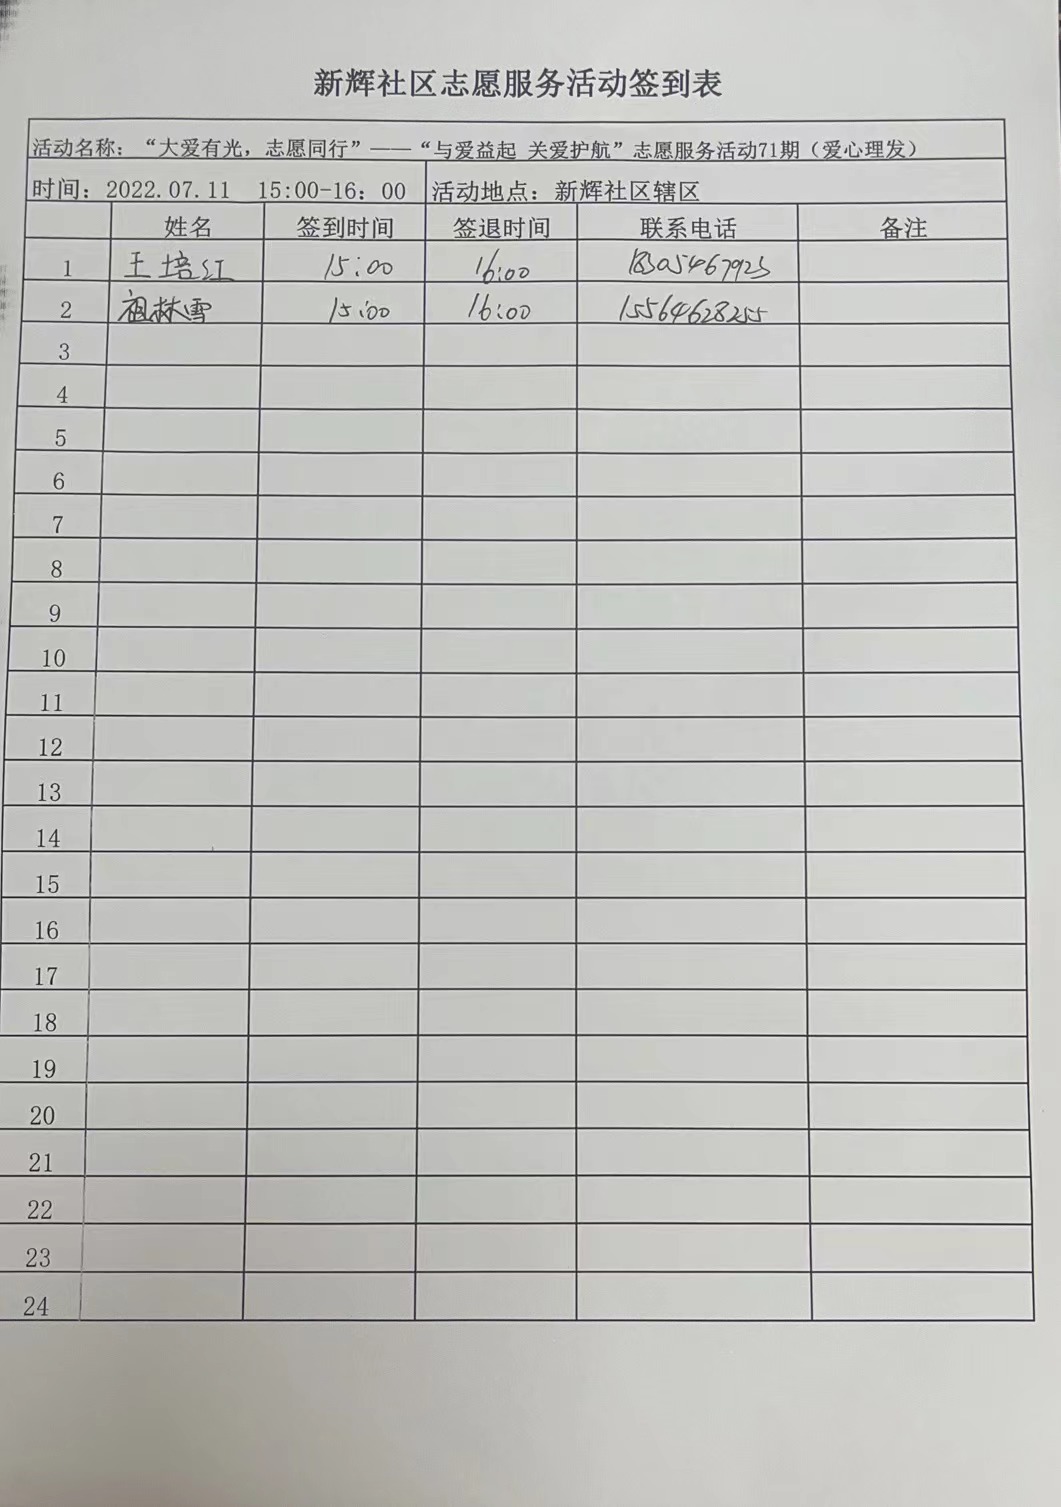 新辉社区志愿服务活动签到表
活动名称：“大爱有光，志愿同行”——“与爱益起 关爱护航”志愿服务活动71期（爱心理发）
时间：2022.07.11 15:00-16：00 活动地点：新辉社区辖区
姓名 签到时间 签退时间 联系电话 备注
1 王培红 15:00 16:00 18305467923
2 祖林雪 15:00 16:00 15564628255
3
4
5
6
7
8
9
10
11
12
13
14
15
16
17
18
19
20
21
22
23
24